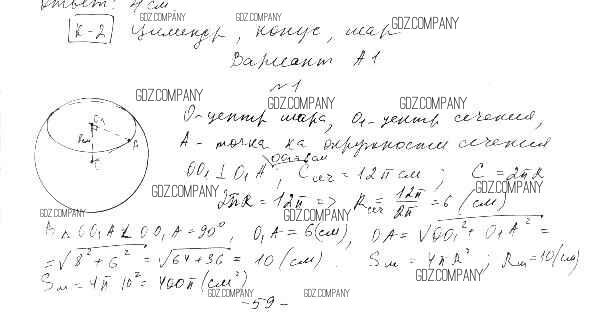 Ответ: 4 см
GDZ.COMPANY GDZ.COMPANY GDZ.COMPANY
К-2 Цилиндр, конус, шар
Вариант А1
GDZ.COMPANY
№1
GDZ.COMPANY GDZ.COMPANY GDZ.COMPANY
O-центр шара, O₁-центр сечения,
A - точка на окружности сечения
OO₁ ⊥ O₁A, Cсеч = 12π см; C = 2πR
GDZ.COMPANY GDZ.COMPANY
2πR = 12π => Rсеч = 12π/2π = 6 (см)
GDZ.COMPANY GDZ.COMPANY
△OO₁A ∠OO₁A = 90°, O₁A = 6(см), OA = √OO₁² + O₁A² =
= √8² + 6² = √64 + 36 = 10 (см). Sш = 4πR²; Rш = 10(см)
GDZ.COMPANY
Sш = 4π 10² = 400π (см²)
GDZ.COMPANY GDZ.COMPANY
-59-